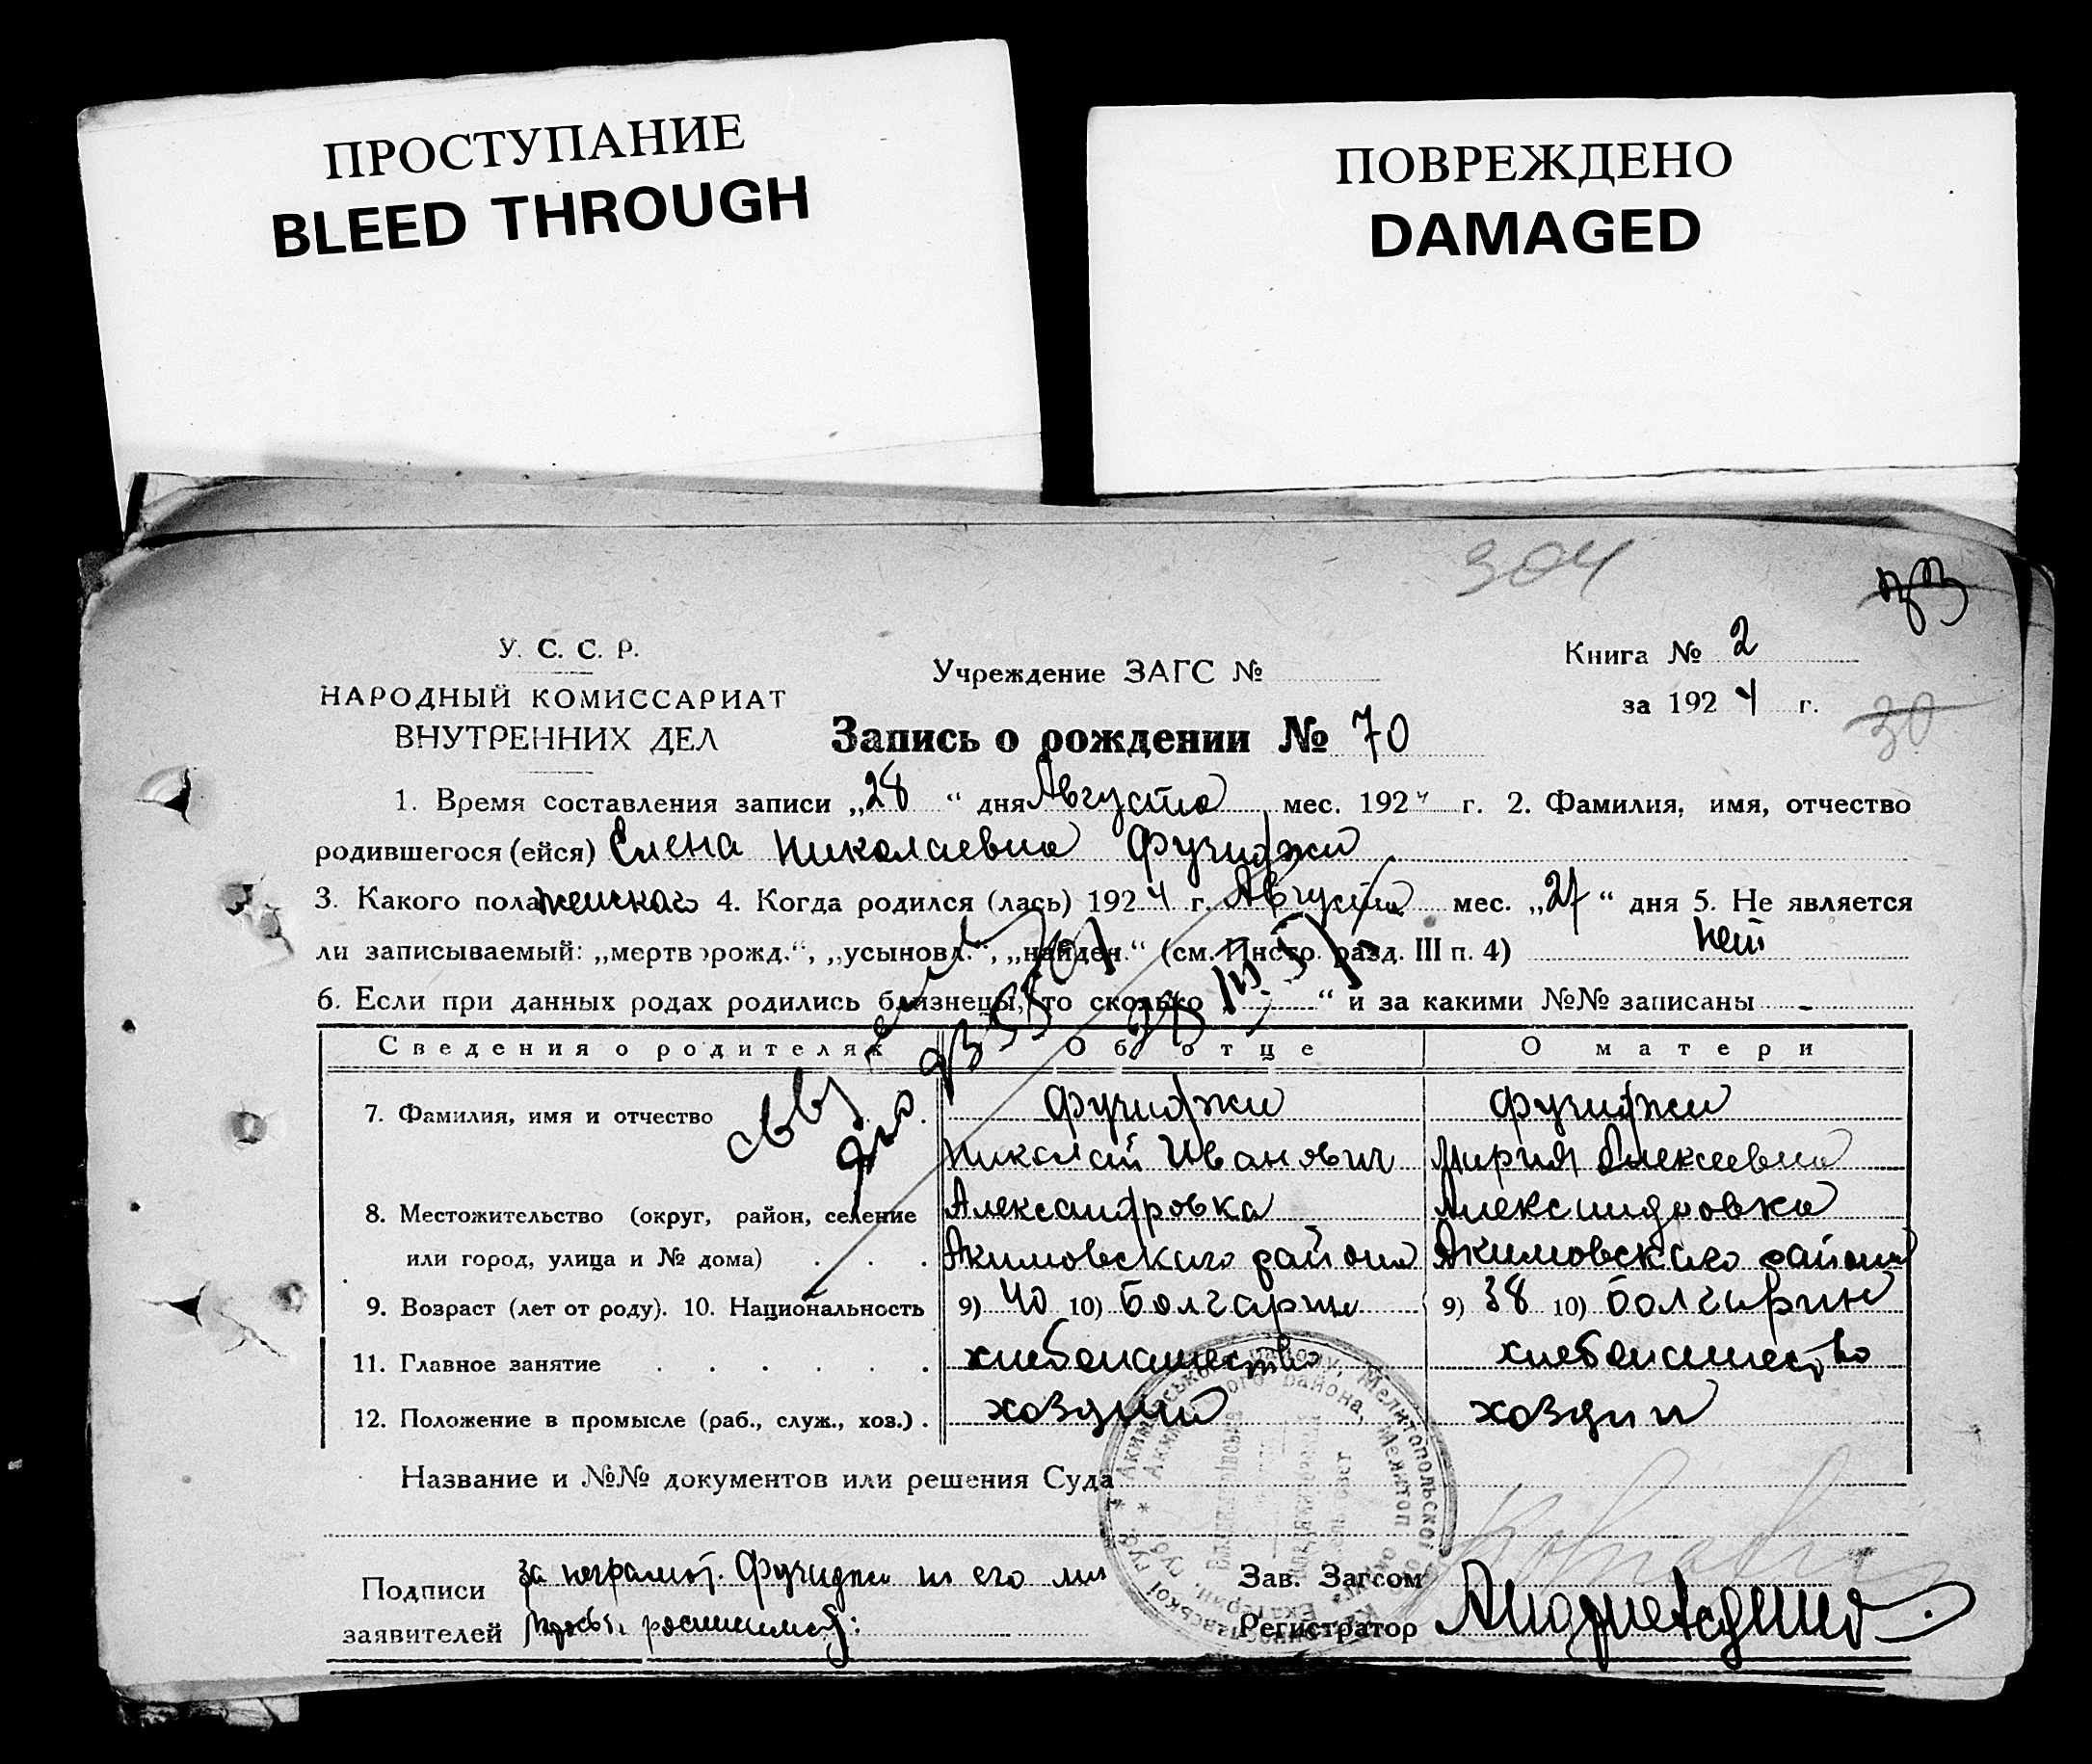 ПРОСТУПАНИЕ
BLEED THROUGH
ПОВРЕЖДЕНО
DAMAGED
304
У. С. С. Р.
НАРОДНЫЙ КОМИССАРИАТ
ВНУТРЕННИХ ДЕЛ
Учреждение ЗАГС №
Книга № 2
за 1924 г.
30
Запись о рождении № 70
1. Время составления записи „28“ дня Августа мес. 1924 г. 2. Фамилия, имя, отчество
родившегося (ейся) Елена Николаевна Фучиджи
3. Какого пола женскаго 4. Когда родился (лась) 1924 г. Августа мес. „27“ дня 5. Не является
ли записываемый: „мертворожд.“, „усыновл.“, „найден.“ (см. Инстр. разд. III п. 4) нет
6. Если при данных родах родились близнецы, то сколько „ “ и за какими №№ записаны -
Сведения о родителях Об отце О матери
7. Фамилия, имя и отчество Фучиджи Фучиджи
Николай Иванович Мария Алексеевна
8. Местожительство (округ, район, селение Александровка Александровка
или город, улица и № дома) . . . Акимовскаго района Акимовскаго района
9. Возраст (лет от роду). 10. Национальность 9) 40 10) болгарин 9) 38 10) болгарин
11. Главное занятие . . . . . . хлебопашество хлебопашество
12. Положение в промысле (раб., служ., хоз.) . хозяин хозяин
Название и №№ документов или решения Суда
Подписи за неграмот. Фучиджи по его
заявителей
Зав. Загсом
Регистратор